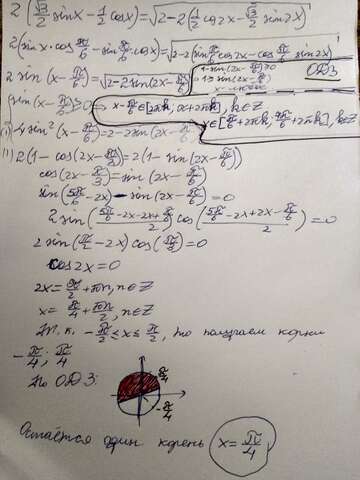 2(√3/2 sinx - 1/2 cosx) = √(2-2(1/2 cos2x - √3/2 sin2x))
2(sinx·cos π/6 - sin π/6·cosx) = √(2-2(sin π/6 cos2x - cos π/6 sin2x))
2 sin(x-π/6) = √(2-2sin(2x-π/6))
ОДЗ
x-π/6 ∈ [2πk, π+2πk], k∈Z
x∈[π/6+2πk, 7π/6+2πk], k∈Z
4sin²(x-π/6) = 2-2sin(2x-π/6)
2(1-cos(2x-π/3)) = 2(1-sin(2x-π/6))
cos(2x-π/3) = sin(2x-π/6)
sin(5π/6-2x) - sin(2x-π/6) = 0
2sin((5π/6-2x-2x+π/6)/2) cos((5π/6-2x+2x-π/6)/2) = 0
2 sin(π/2-2x) cos(π/3) = 0
cos2x = 0
2x = π/2+πn, n∈Z
x = π/4 + πn/2, n∈Z
Т. к. -π/2 ≤ x ≤ π/2, то получаем корни
-π/4; π/4
По ОДЗ:
π/4
-π/4
Остаётся один корень x = π/4